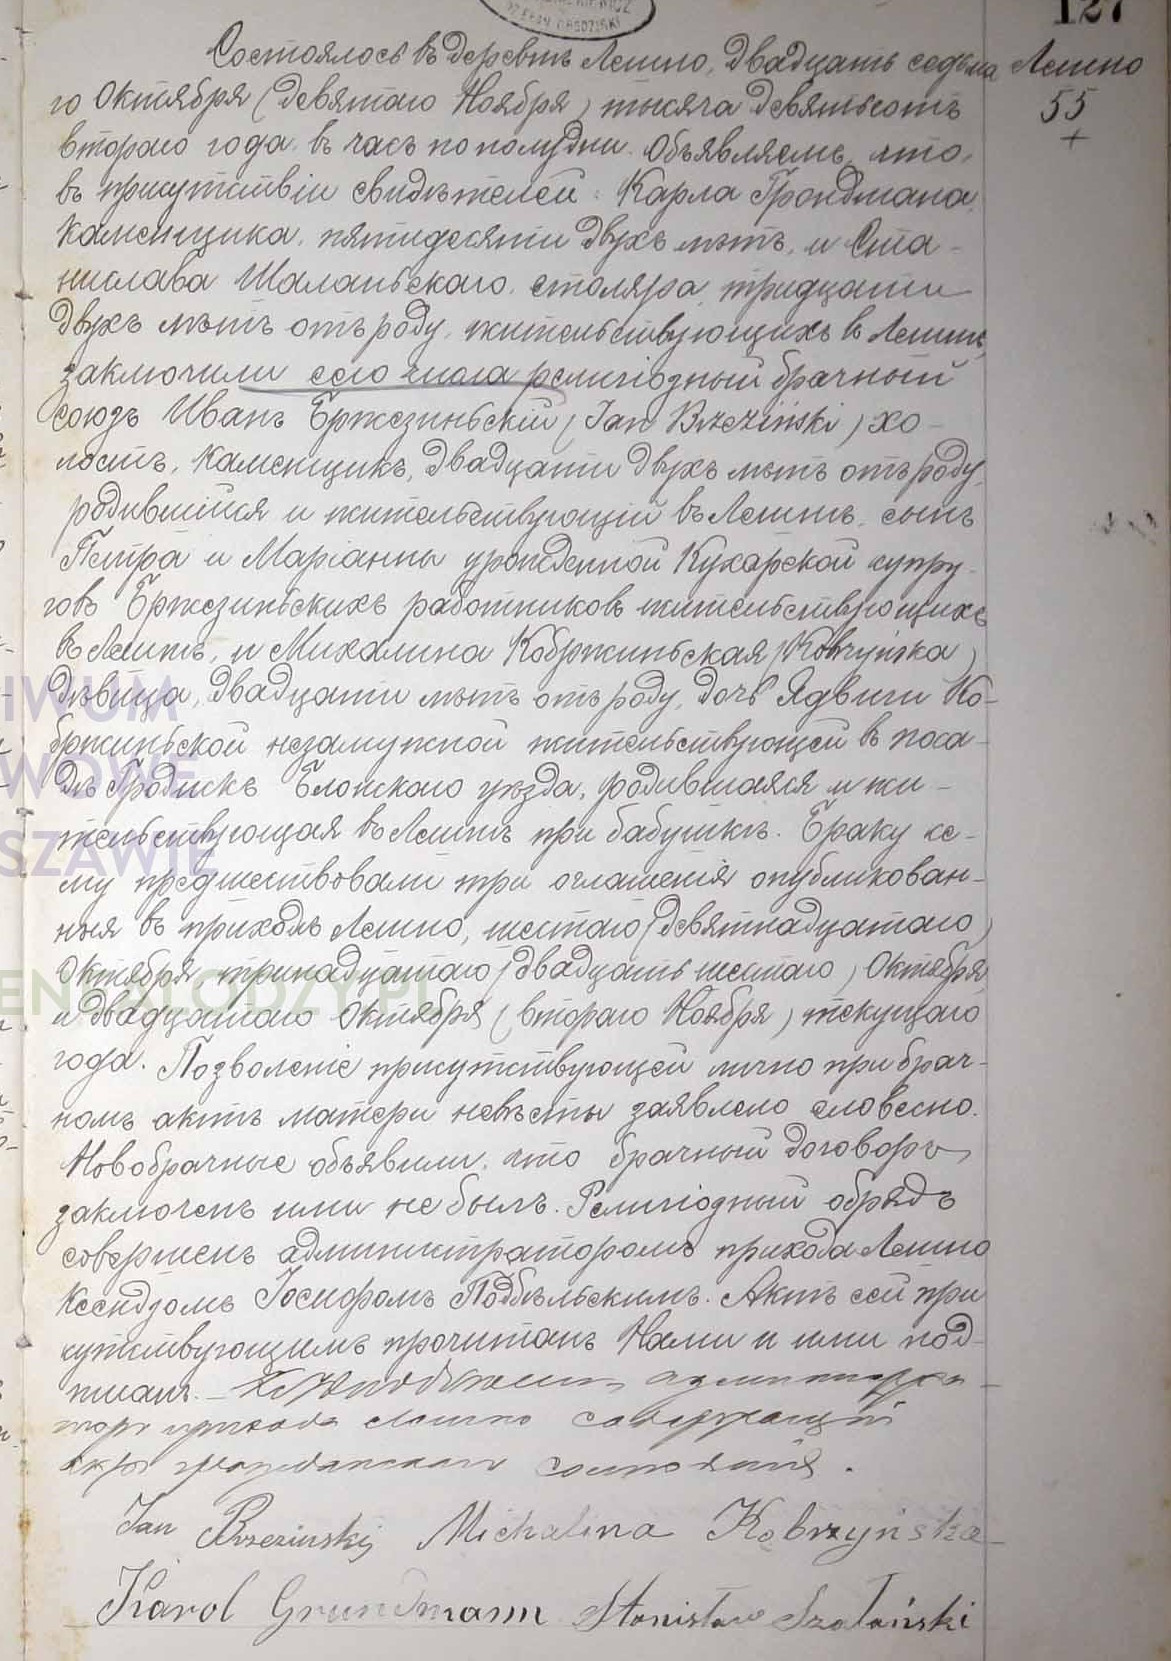 127
Состоялось въ деревнѣ Лешно, двадцать седьма Лешно
го Октября (девятаго Ноября) тысяча девятьсотъ 55
втораго года въ часъ пополудни. Объявляемъ, что,
въ присутствіи свидѣтелей: Карла Грондмана,
каменщика, пятидесяти двухъ лѣтъ, и Ста-
нислава Шаланьскаго, столяра, тридцати
двухъ лѣтъ отъ роду, жительствующихъ въ Лешнѣ,
заключили сего числа религіозный брачный
союзъ Иванъ Бржезиньскій (Jan Brzeziński) хо-
лостъ, каменщикъ, двадцати двухъ лѣтъ отъ роду,
родившійся и жительствующій въ Лешнѣ, сынъ
Петра и Маріанны урожденной Кухарской супру-
говъ Бржезиньскихъ работниковъ жительствующихъ
въ Лешнѣ, и Михалина Кобржиньская (Kobrzyńska)
дѣвица, двадцати лѣтъ отъ роду, дочь Ядвиги Ко-
бржиньской незамужной жительствующей въ поса-
дѣ Гродискъ Блонскаго уѣзда, родившаяся и жи-
тельствующая въ Лешнѣ при бабушкѣ. Браку се-
му предшествовали три оглашенія опубликован-
ныя въ приходѣ Лешно, шестаго (девятнадцатаго)
Октября, тринадцатаго (двадцать шестаго) Октября,
и двадцатаго Октября (втораго Ноября) текущаго
года. Позволеніе присутствующей лично при брач-
номъ актѣ матери невѣсты заявлено словесно.
Новобрачные объявили, что брачный договоръ
заключенъ ими не былъ. Религіозный обрядъ
совершенъ администраторомъ прихода Лешно
Ксендзомъ Іосифомъ Подбѣльскимъ. Актъ сей при
сутствующимъ прочитанъ Нами и ими под-
писанъ. администра-
торъ прихода Лешно содержащій
акты гражданскаго состоянія.
Jan Brzezinskij Michalina Kobrzyńska
Karol Grundmann Stanisław Szalański